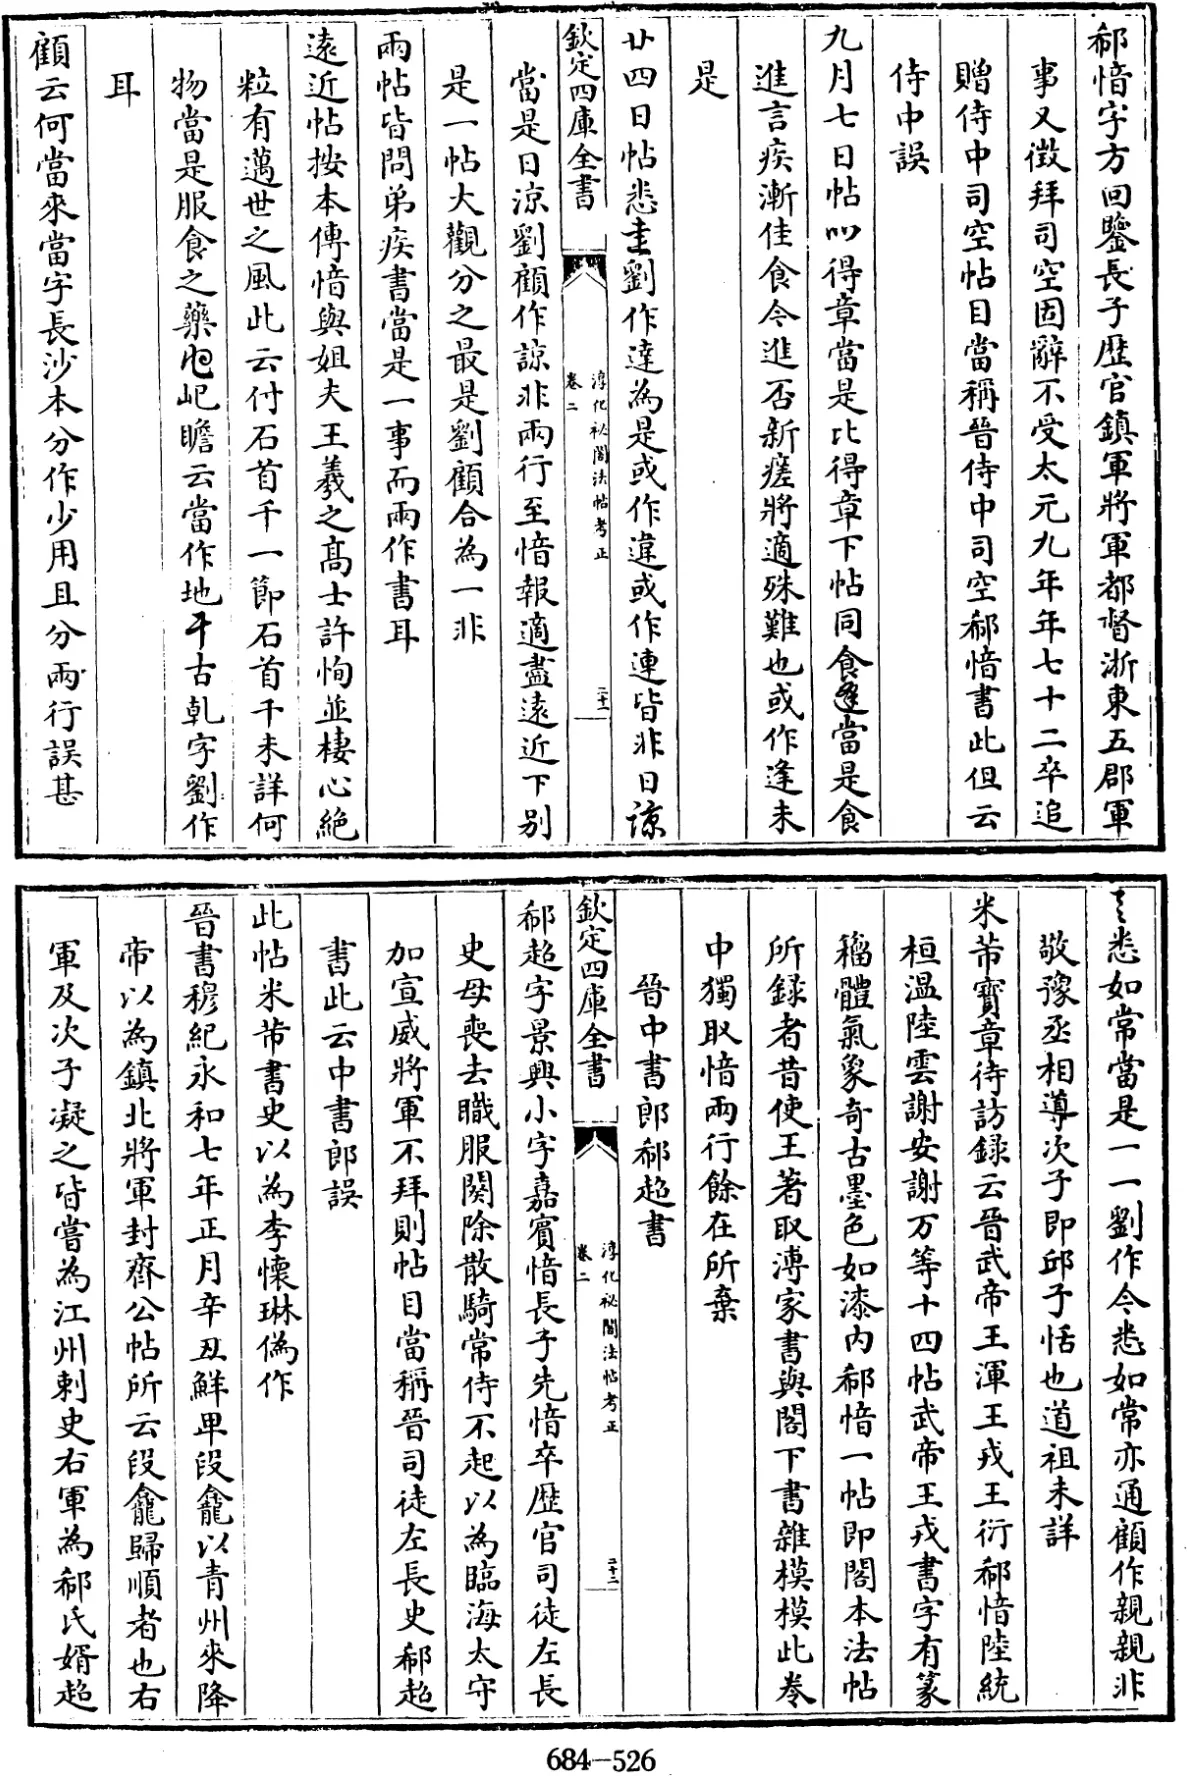 郗愔字方回鑒長子歴官鎮軍將軍都督浙東五郡軍
事又徴拜司空固辭不受太元九年年七十二卒追
贈侍中司空帖目當稱晉侍中司空郗愔書此但云
侍中誤
九月七日帖得章當是比得章下帖同食當是食
進言疾漸佳食今進否新瘥將適殊難也或作逢未
是
廿四日帖悉劉作達為是或作違或作連皆非日諒
欽定四庫全書
淳化祕閣法帖考正
卷二
二十一
當是日涼劉顧作諒非兩行至愔報適盡遠近下别
是一帖大觀分之最是劉顧合為一非
兩帖皆問弟疾書當是一事而兩作書耳
逺近帖按本傳愔與姐夫王羲之髙士許恂並棲心絶
粒有邁世之風此云付石首千一節石首千未詳何
物當是服食之藥屺瞻云當作地古乹字劉作
耳
顧云何當來當字長沙本分作少用且分兩行誤甚
悉如常當是一一劉作令悉如常亦通顧作親親非
敬豫丞相導次子即邱子恬也道祖未詳
米芾寶章待訪録云晉武帝王渾王戎王衍郗愔陸統
桓温陸雲謝安謝万等十四帖武帝王戎書字有篆
籕體氣象奇古墨色如漆内郗愔一帖即閣本法帖
所録者昔使王著取溥家書與閣下書雜模模此卷
中獨取愔兩行餘在所棄
晉中書郎郗超書
欽定四庫全書
淳化祕閣法帖考正
卷二
二十二
郗超字景興小字嘉賓愔長子先愔卒歴官司徒左長
史母喪去職服闋除散騎常侍不起以為臨海太守
加宣威將軍不拜則帖目當稱晉司徒左長史郗超
書此云中書郎誤
此帖米芾書史以為李懷琳偽作
晉書穆紀永和七年正月辛丑鮮卑段龕以青州來降
帝以為鎮北將軍封齊公帖所云段龕歸順者也右
軍及次子凝之皆嘗為江州刺史右軍為郗氏婿超
684-526